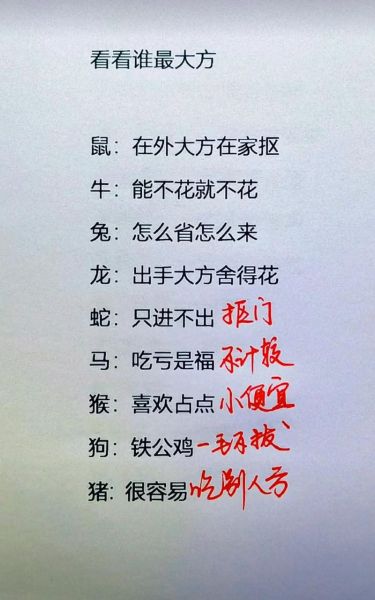 看看谁最大方
鼠：在外大方在家抠
牛：能不花就不花
兔：怎么省怎么来
龙：出手大方舍得花
蛇：只进不出 抠门
马：吃亏是福 不计较
猴：喜欢占点 小便宜
狗：铁公鸡 一毛不拔
猪：很容易 吃别人亏